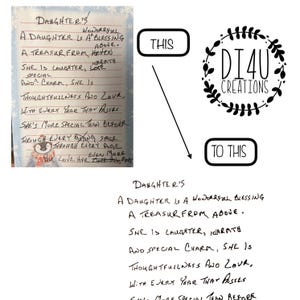 DAUGHTER'S
WONDERFUL
A DAUGHTER IS A BLESSING
ABOVE.
A TREASURE FROM HEAVEN
WARMTH
SHE IS LAUGHTER,
SPECIAL
AND CHARM, SHE IS
THOUGHTFULNESS AND LOVE,
WITH EVERY YEAR THAT PASSES
SHE'S MORE SPECIAL THAN BEFORE
THROUGH EVERY
THROUGH EVERY AGE
EVEN MORE
LOVE HER
THIS
DI4U
CREATIONS
TO THIS
DAUGHTER'S
A DAUGHTER IS A WONDERFUL BLESSING
A TREASURE FROM ABOVE.
SHE IS LAUGHTER, WARMTH
AND SPECIAL CHARM, SHE IS
THOUGHTFULNESS AND LOVE,
WITH EVERY YEAR THAT PASSES
SHE'S MORE SPECIAL THAN BEFORE